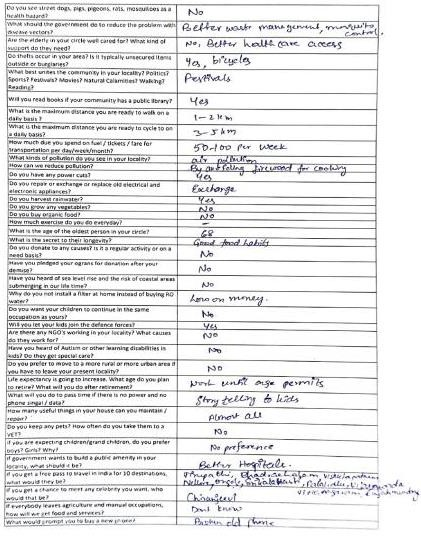 Do you see street dogs, pigs, pigeons, rats, mosquitoes as a
health hazard?
No
What should the government do to reduce the problem with
disease vectors?
Better waste management, mosquito
control.
Are the elderly in your circle well cared for? What kind of
support do they need?
No, Better health care access
Do thefts occur in your area? Is it typically unsecured items
outside or burglaries?
Yes, bicycles
What best unites the community in your locality? Politics?
Sports? Festivals? Movies? Natural Calamities? Walking?
Reading?
Festivals
Will you read books if your community has a public library?
Yes
What is the maximum distance you are ready to walk on a
daily basis ?
1-2 km
What is the maximum distance you are ready to cycle to on
a daily basis?
3-5 km
How much due you spend on fuel / tickets / fare for
transportation per day/week/month?
50-100 per week
What kinds of pollution do you see in your locality?
air pollution
How can we reduce pollution?
By avoiding firewood for cooking
Do you have any power cuts?
Yes
Do you repair or exchange or replace old electrical and
electronic appliances?
Exchange
Do you harvest rainwater?
Yes
Do you grow any vegetables?
No
Do you buy organic food?
No
How much exercise do you do everyday?
-
What is the age of the oldest person in your circle?
68
What is the secret to their longevity?
Good food habits
Do you donate to any causes? Is it a regular activity or on a
need basis?
No
Have you pledged your ograns for donation after your
demise?
No
Have you heard of sea level rise and the risk of coastal areas
submerging in our life time?
No
Why do you not install a filter at home instead of buying RO
water?
Low on money.
Do you want your children to continue in the same
occupation as yours?
No
Will you let your kids join the defence forces?
Yes
Are there any NGO's working in your locality? What causes
do they work for?
No
Have you heard of Autism or other learning disabilities in
kids? Do they get special care?
No
Do you prefer to move to a more rural or more urban area if
you have to leave your present locality?
No
Life expectancy is going to increase. What age do you plan
to retire? What will you do after retirement?
Work until age permits
What will you do to pass time if there is no power and no
phone singal / data?
Story telling to kids
How many useful things in your house can you maintain /
repair?
Almost all
Do you keep any pets? How often do you take them to a
VET?
No
If you are expecting children/grand children, do you prefer
boys? Girls? Why?
No preference
If government wants to build a public amenity in your
locality, what should it be?
Better Hospitals.
If you get a free pass to travel in India for 10 destinations,
what would they be?
Nellore, ongole,
If you get a chance to meet any celebrity you want, who
would that be?
Chiranjeevi
If everyone leaves agriculture and manual occupations,
how will we get food and services?
Dont know
What would prompt you to buy a new phone?
old phone